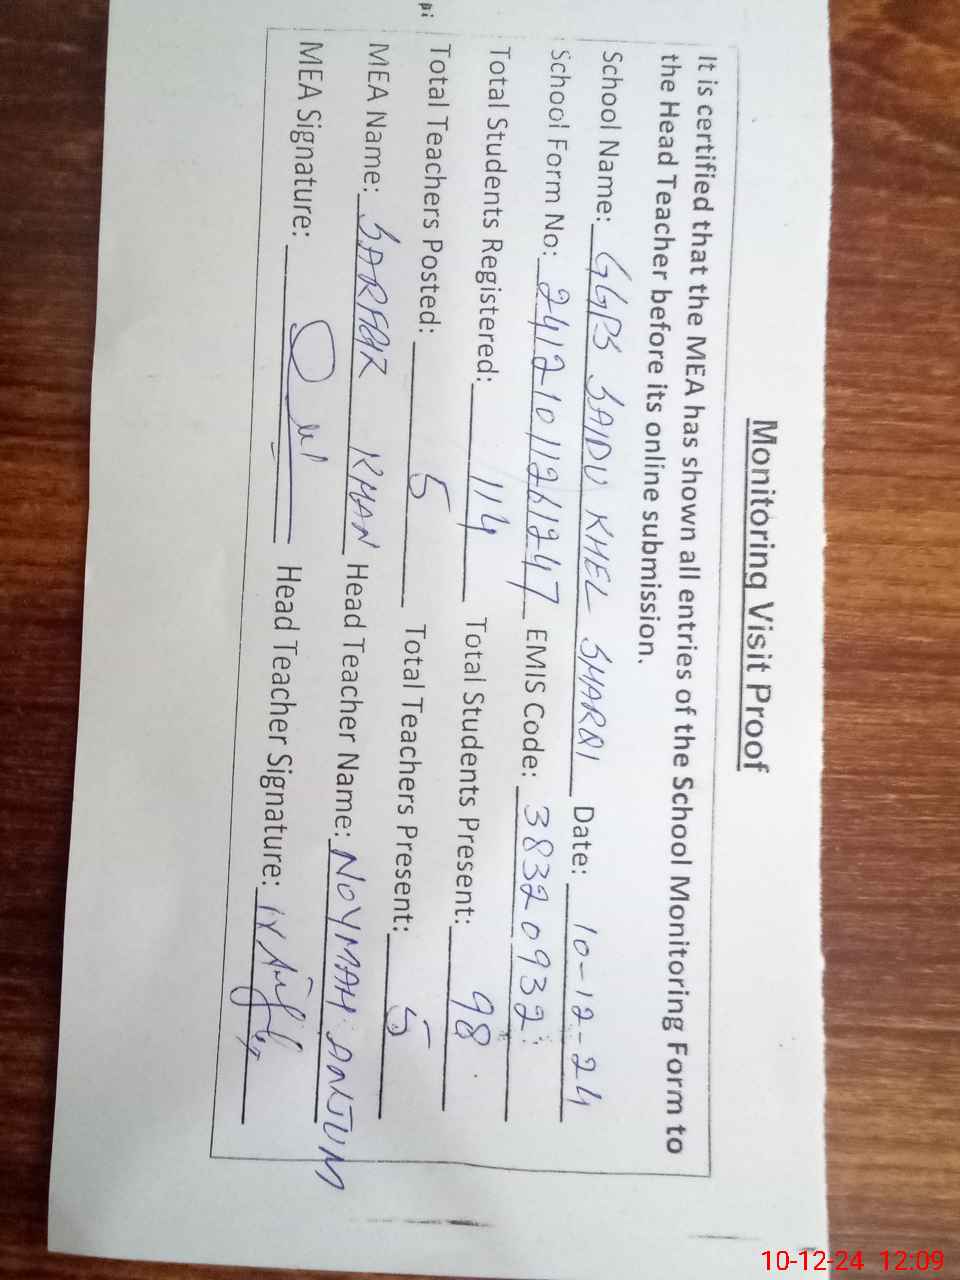 Monitoring Visit Proof
It is certified that the MEA has shown all entries of the School Monitoring Form to
the Head Teacher before its online submission.
School Name: GGPS SAIDU KHEL SHARQI Date: 10-12-24
School Form No: 24121011261247 EMIS Code: 38320932
Total Students Registered: 114 Total Students Present: 98
Total Teachers Posted: 5 Total Teachers Present: 5
MEA Name: SARDAR KHAN Head Teacher Name:
MEA Signature: Head Teacher Signature:
10-12-24 12:09